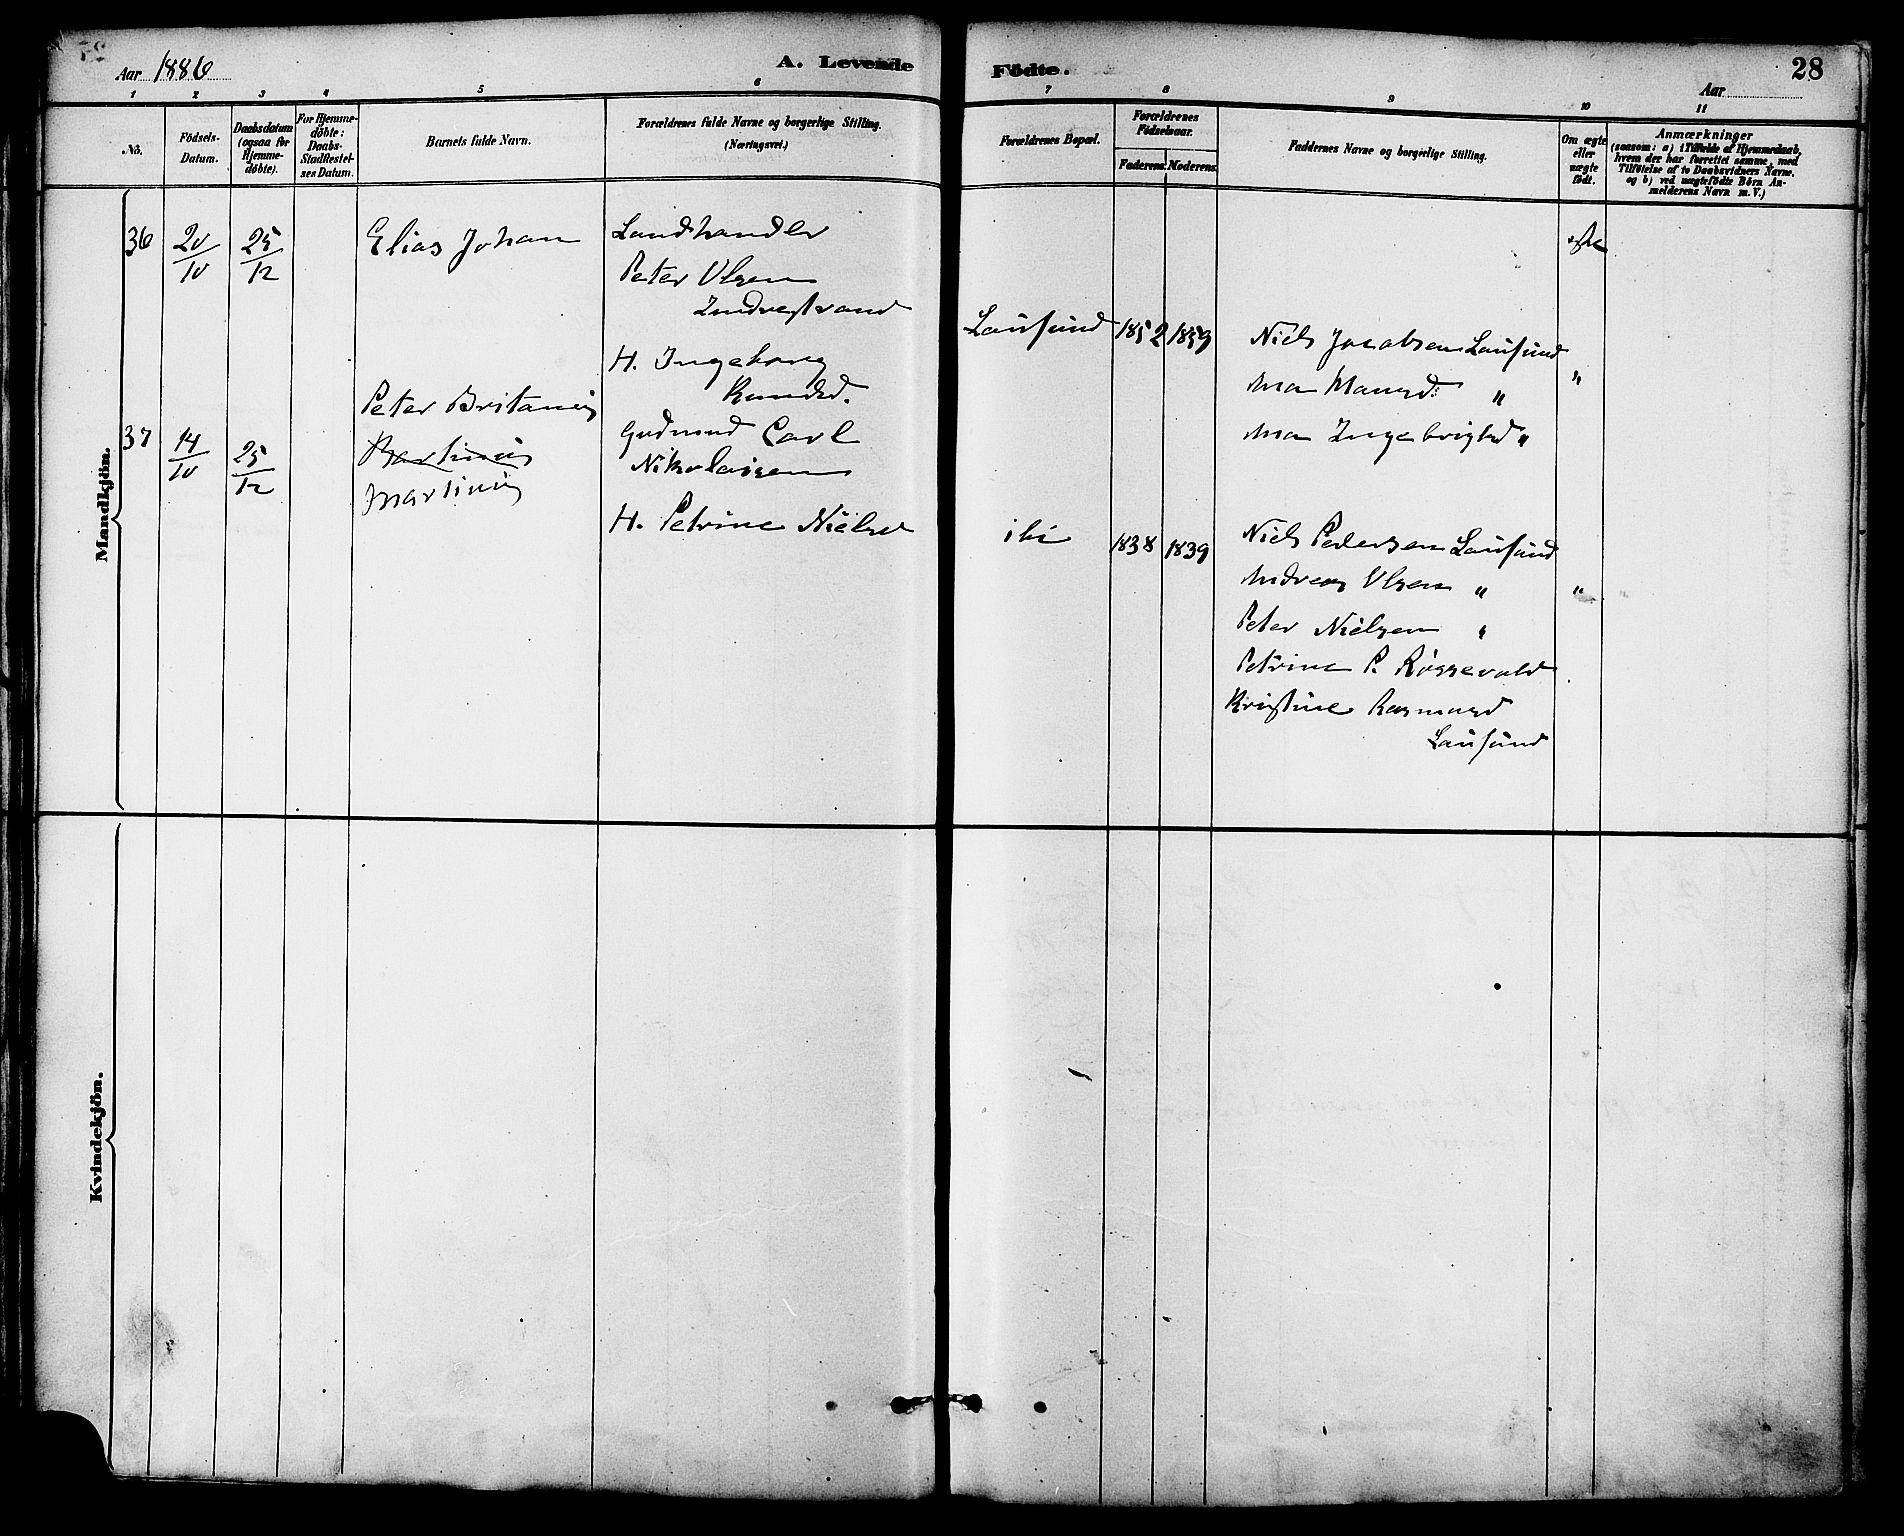 Aar 1886
A. Levende
Födte.
28
Aar
1 2 3 4 5 6 7 8 9 10 11
No.
Födsels-
Datum.
Daabsdatum
(ogsaa for
Hjemme-
döbte).
For Hjemme-
döbte:
Daabs-
Stadfæstel-
ses Datum.
Barnets fulde Navn.
Forældrenes fulde Navne og borgerlige Stilling.
(Næringsvei.)
Forældrenes Bopæl.
Forældrenes
Födselsaar.
Faderens. Moderens.
Faddernes Navne og borgerlige Stilling.
Om ægte
eller
uægte
født.
Anmærkninger
(saasom: a) i Tilfælde af Hjemmedaab,
hvem der har forrettet samme, med
Tilföielse af to Daabsvidners Navne,
og b) ved uægtefödte Börn An-
melderens Navn m. V.)
Mandkjön.
36
20/10
25/12
Elias Johan
Landhandler
Peter Olsen
Indrestrand
H. Ingeborg
Knudsd.
Lausund
1852
1859
Niels Jacobsen Lausund
Ana Mansd: "
Ana Ingebrigtsd "
ægte
"
37
14/10
25/12
Peter Britanius
Martinius
Gudmund Carl
Nikolaisen
H. Petrine Nielsd
ibi
1838
1839
Niels Pedersen Lausund
Andreas Olsen "
Peter Nielsen "
Petrine P. Røssevold
Kristine Rasmusd
Lausund
"
Kvindekjön.